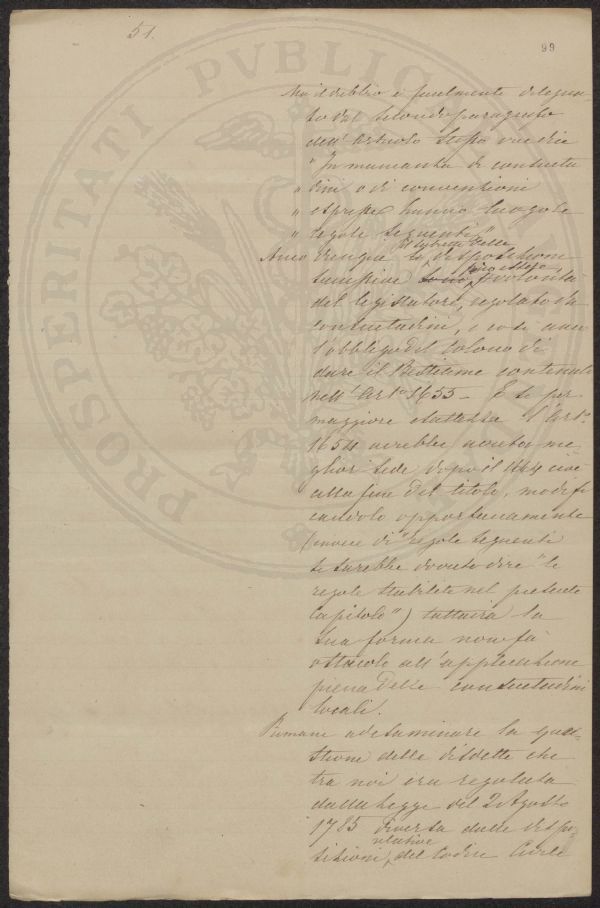 51.
99
Ma il dubbio è facilmente dilegua-
to dal secondo paragrafo
dell' Articolo stesso ove dice
" In mancanza di consuetu
" dini o di convenzioni
" espresse hanno luogo le
" regole seguenti"
Anco dunque le disposizioni
del legislatore, regolato da
consuetudini, e così anco
l'obbligo del colono di
dare il Bestiame contenuto
nell' Art.o 1655 – E se per
maggiore esattezza l'Art.o
1654 avrebbe avuto me
glior sede dopo il 1664 cioè
alla fine del titolo, modifi
candolo opportunamente
(invece di "regole seguenti
si sarebbe dovuto dire "le
regole stabilite nel presente
Capitolo") tuttavia la
sua forma non fa
ostacolo all'applicazione
piena delle consuetudini
locali.
Rimane ad esaminare la que-
stione delle disdette che
tra noi era regolata
dalla Legge del 2 Agosto
1785 diversa dalle dispo
sizioni relative del Codice Civile
PROSPERITATI PVBLICAE